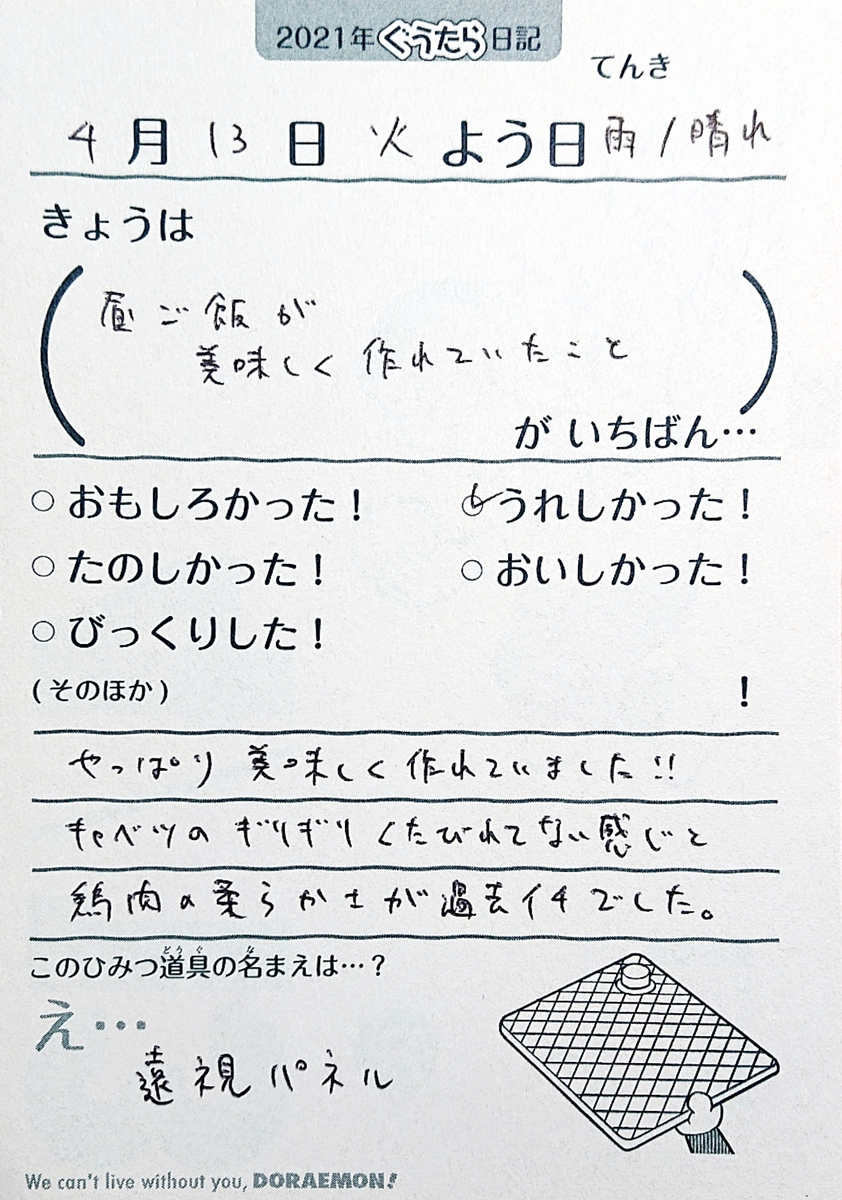 2021年ぐうたら日記
てんき
4月13日火よう日雨/晴れ
きょうは
昼ご飯が
美味しく作れていたこと
がいちばん…
○おもしろかった！ ○うれしかった！
○たのしかった！ ○おいしかった！
○びっくりした！
(そのほか) ！
やっぱり美味しく作れていました!!
キャベツのギリギリくたびれてない感じと
鶏肉の柔らかさが過去イチでした。
このひみつ道具の名まえは…？
え…
遠視パネル
We can't live without you, DORAEMON!